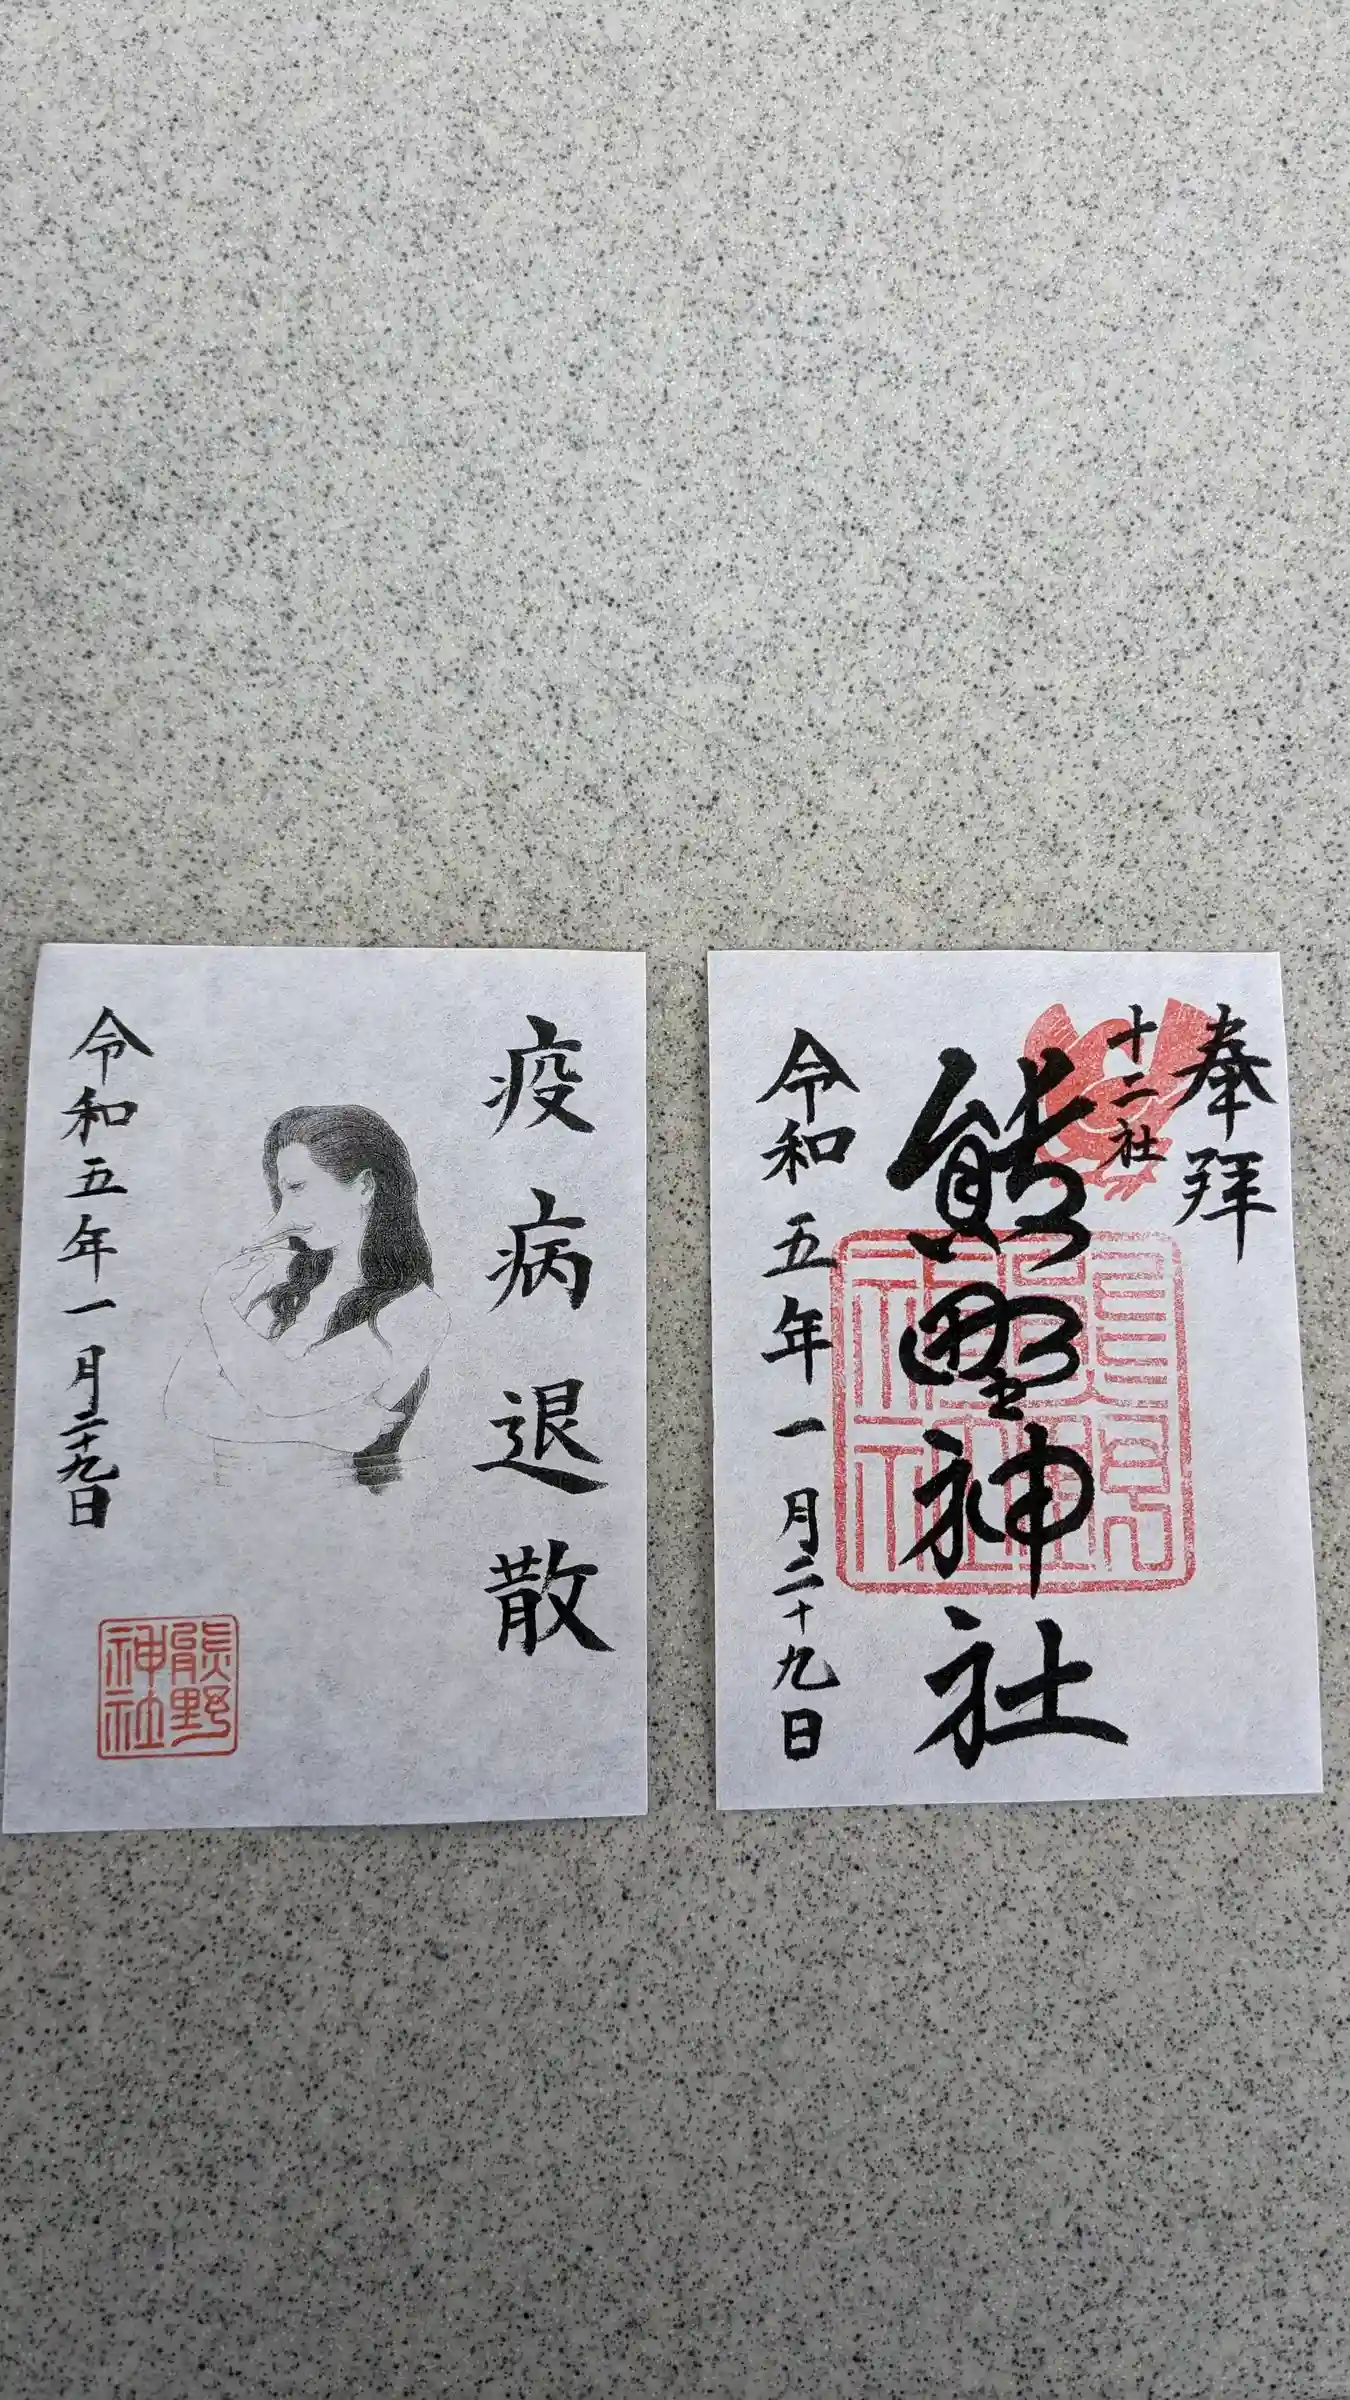 奉拝
十二社
熊野神社
令和五年一月二十九日
疫病退散
令和五年一月二十九日
熊野
神社